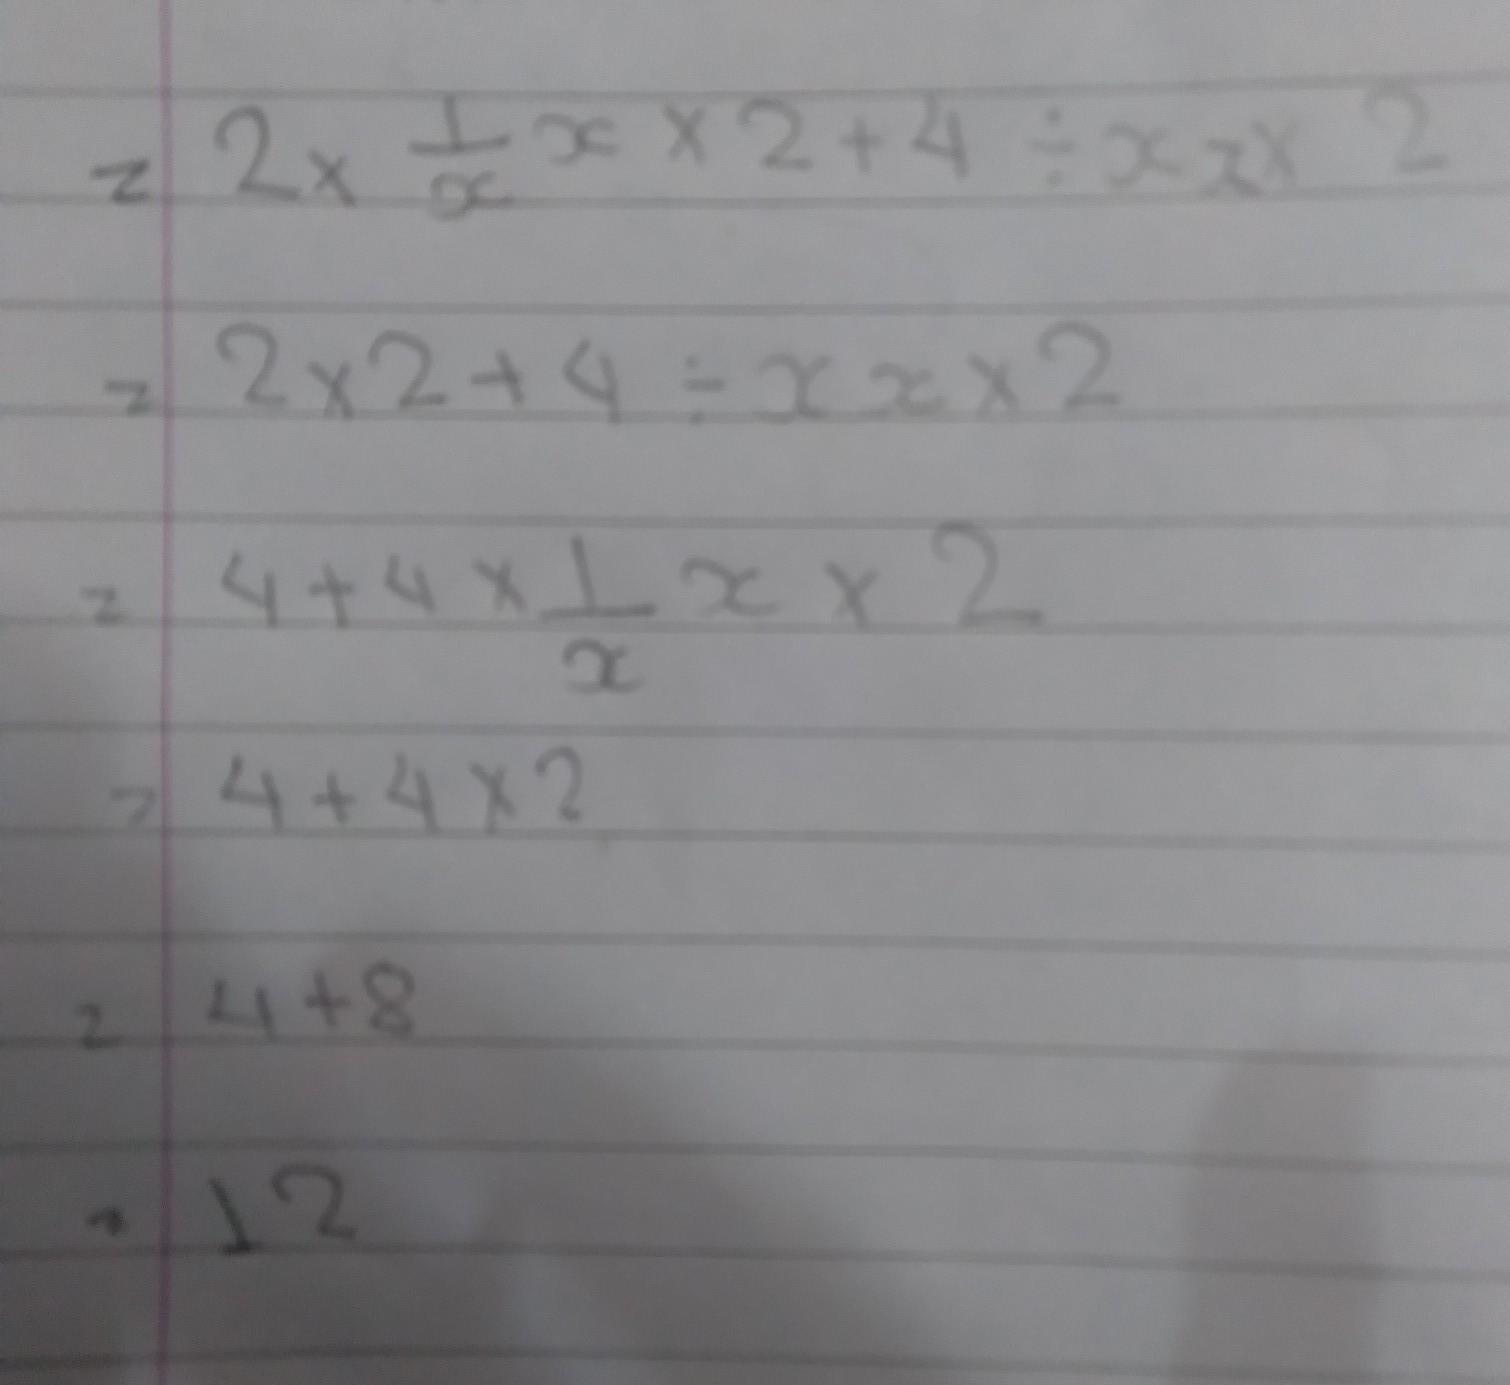 = 2 × 1/x x × 2 + 4 ÷ x x × 2
= 2 × 2 + 4 ÷ x x × 2
= 4 + 4 × 1/x x × 2
= 4 + 4 × 2
= 4 + 8
= 12